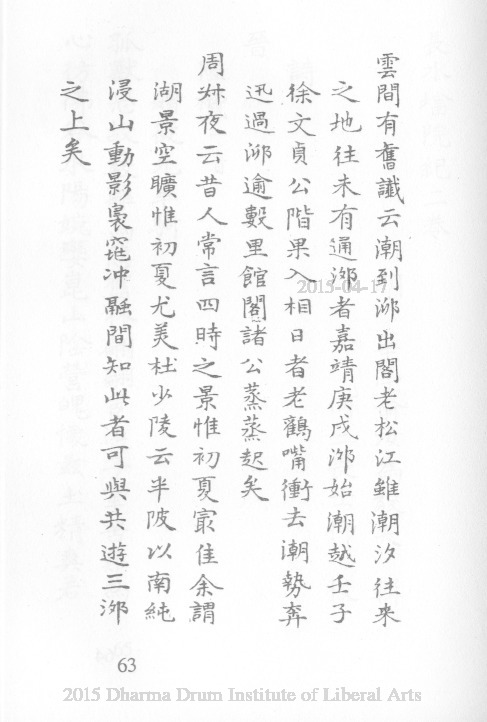 雲間有舊讖云潮到泖出閣老松江雖潮汐往來
之地徃未有通泖者嘉靖庚戌泖始潮越壬子
徐文貞公階果入相日者老鸛嘴衝去潮勢奔
迅過泖逾數里館閣諸公蒸蒸起矣
周叔夜云昔人常言四時之景惟初夏㝡佳余謂
湖景空曠惟初夏尤美杜少陵云半陂以南純
浸山動影裊窕冲融間知此者可與共遊三泖
之上矣
2015-04-17
63
2015 Dharma Drum Institute of Liberal Arts